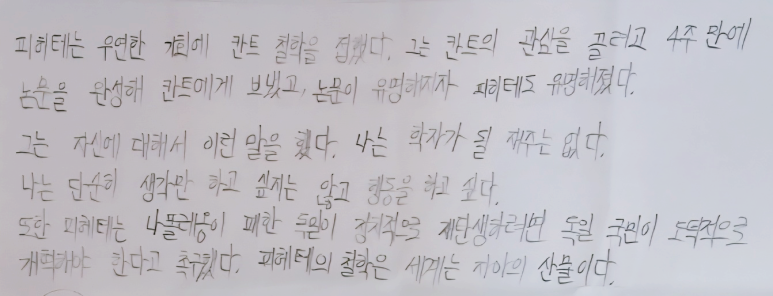 피히테는 우연한 기회에 칸트 철학을 접했다. 그는 칸트의 관심을 끌려고 4주 만에
논문을 완성해 칸트에게 보냈고, 논문이 유명해지자 피히테도 유명해졌다.
그는 자신에 대해서 이런 말을 했다. 나는 학자가 될 재주는 없다.
나는 단순히 생각만 하고 싶지는 않고 행동을 하고 싶다.
또한 피히테는 나폴레옹이 패한 독일이 정치적으로 재탄생하려면 독일 국민이 도덕적으로
개혁해야 한다고 촉구했다. 피히테의 철학은 세계는 자아의 산물이다.